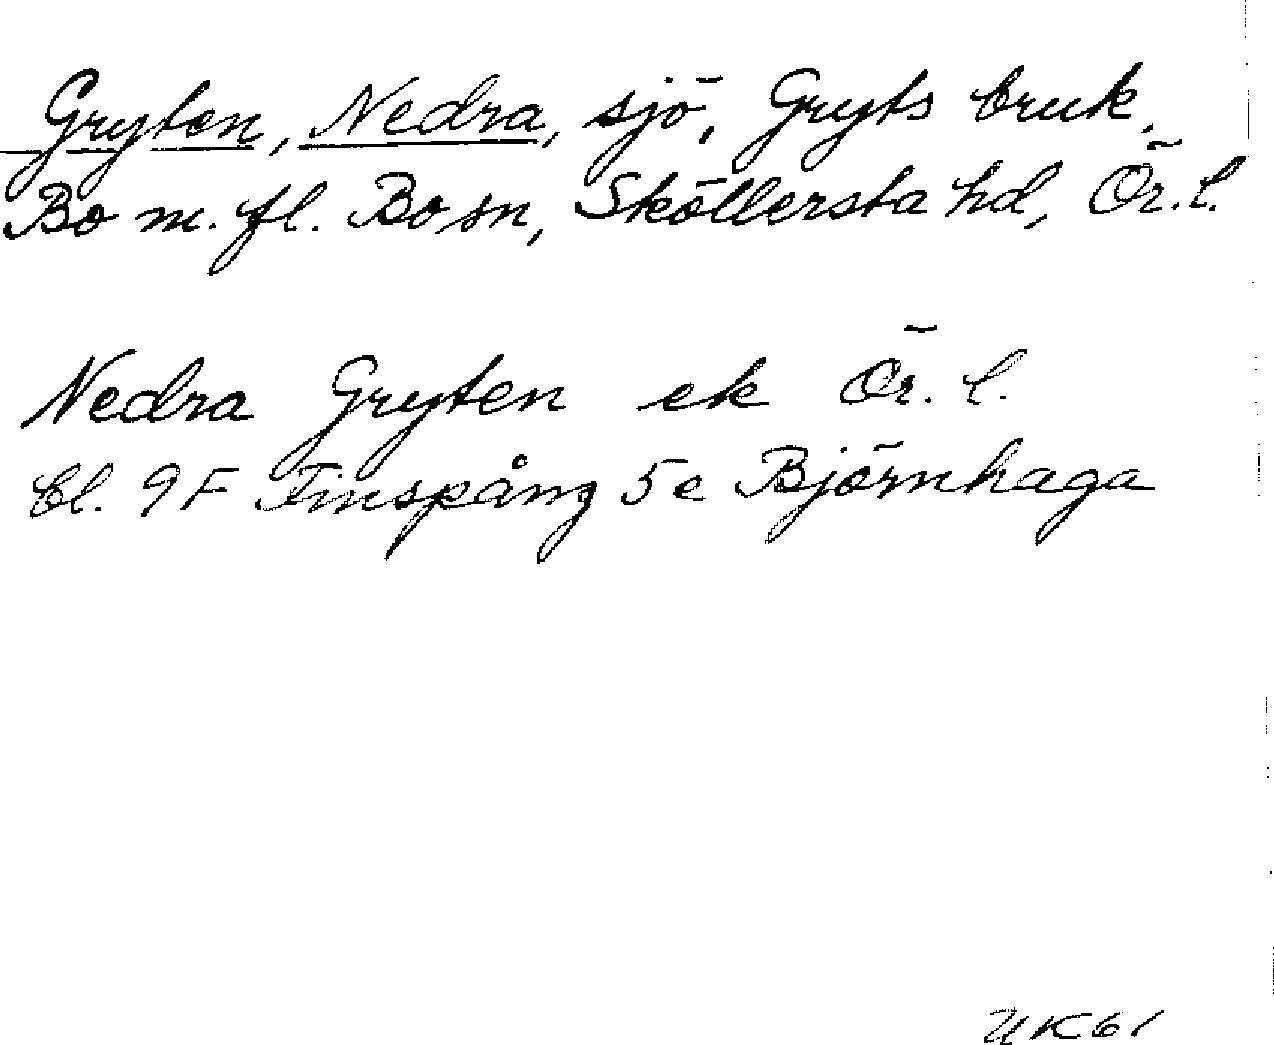 Gryten, Nedra, sjö, Gryts bruk,
Bo m. fl. Bo sn, Sköllersta hd, Ör. l.
Nedra Gryten ek Ör. l.
bl. 9F Finspång 5e Björnhaga
UK61